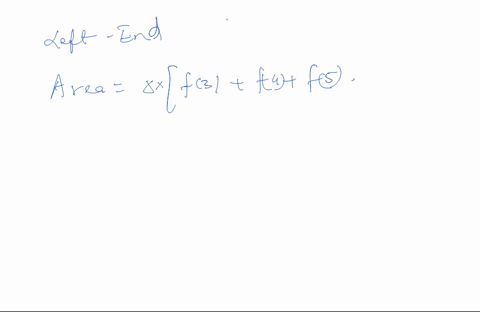 Left-End
Area = δx[f(3) + f(4) + f(5).